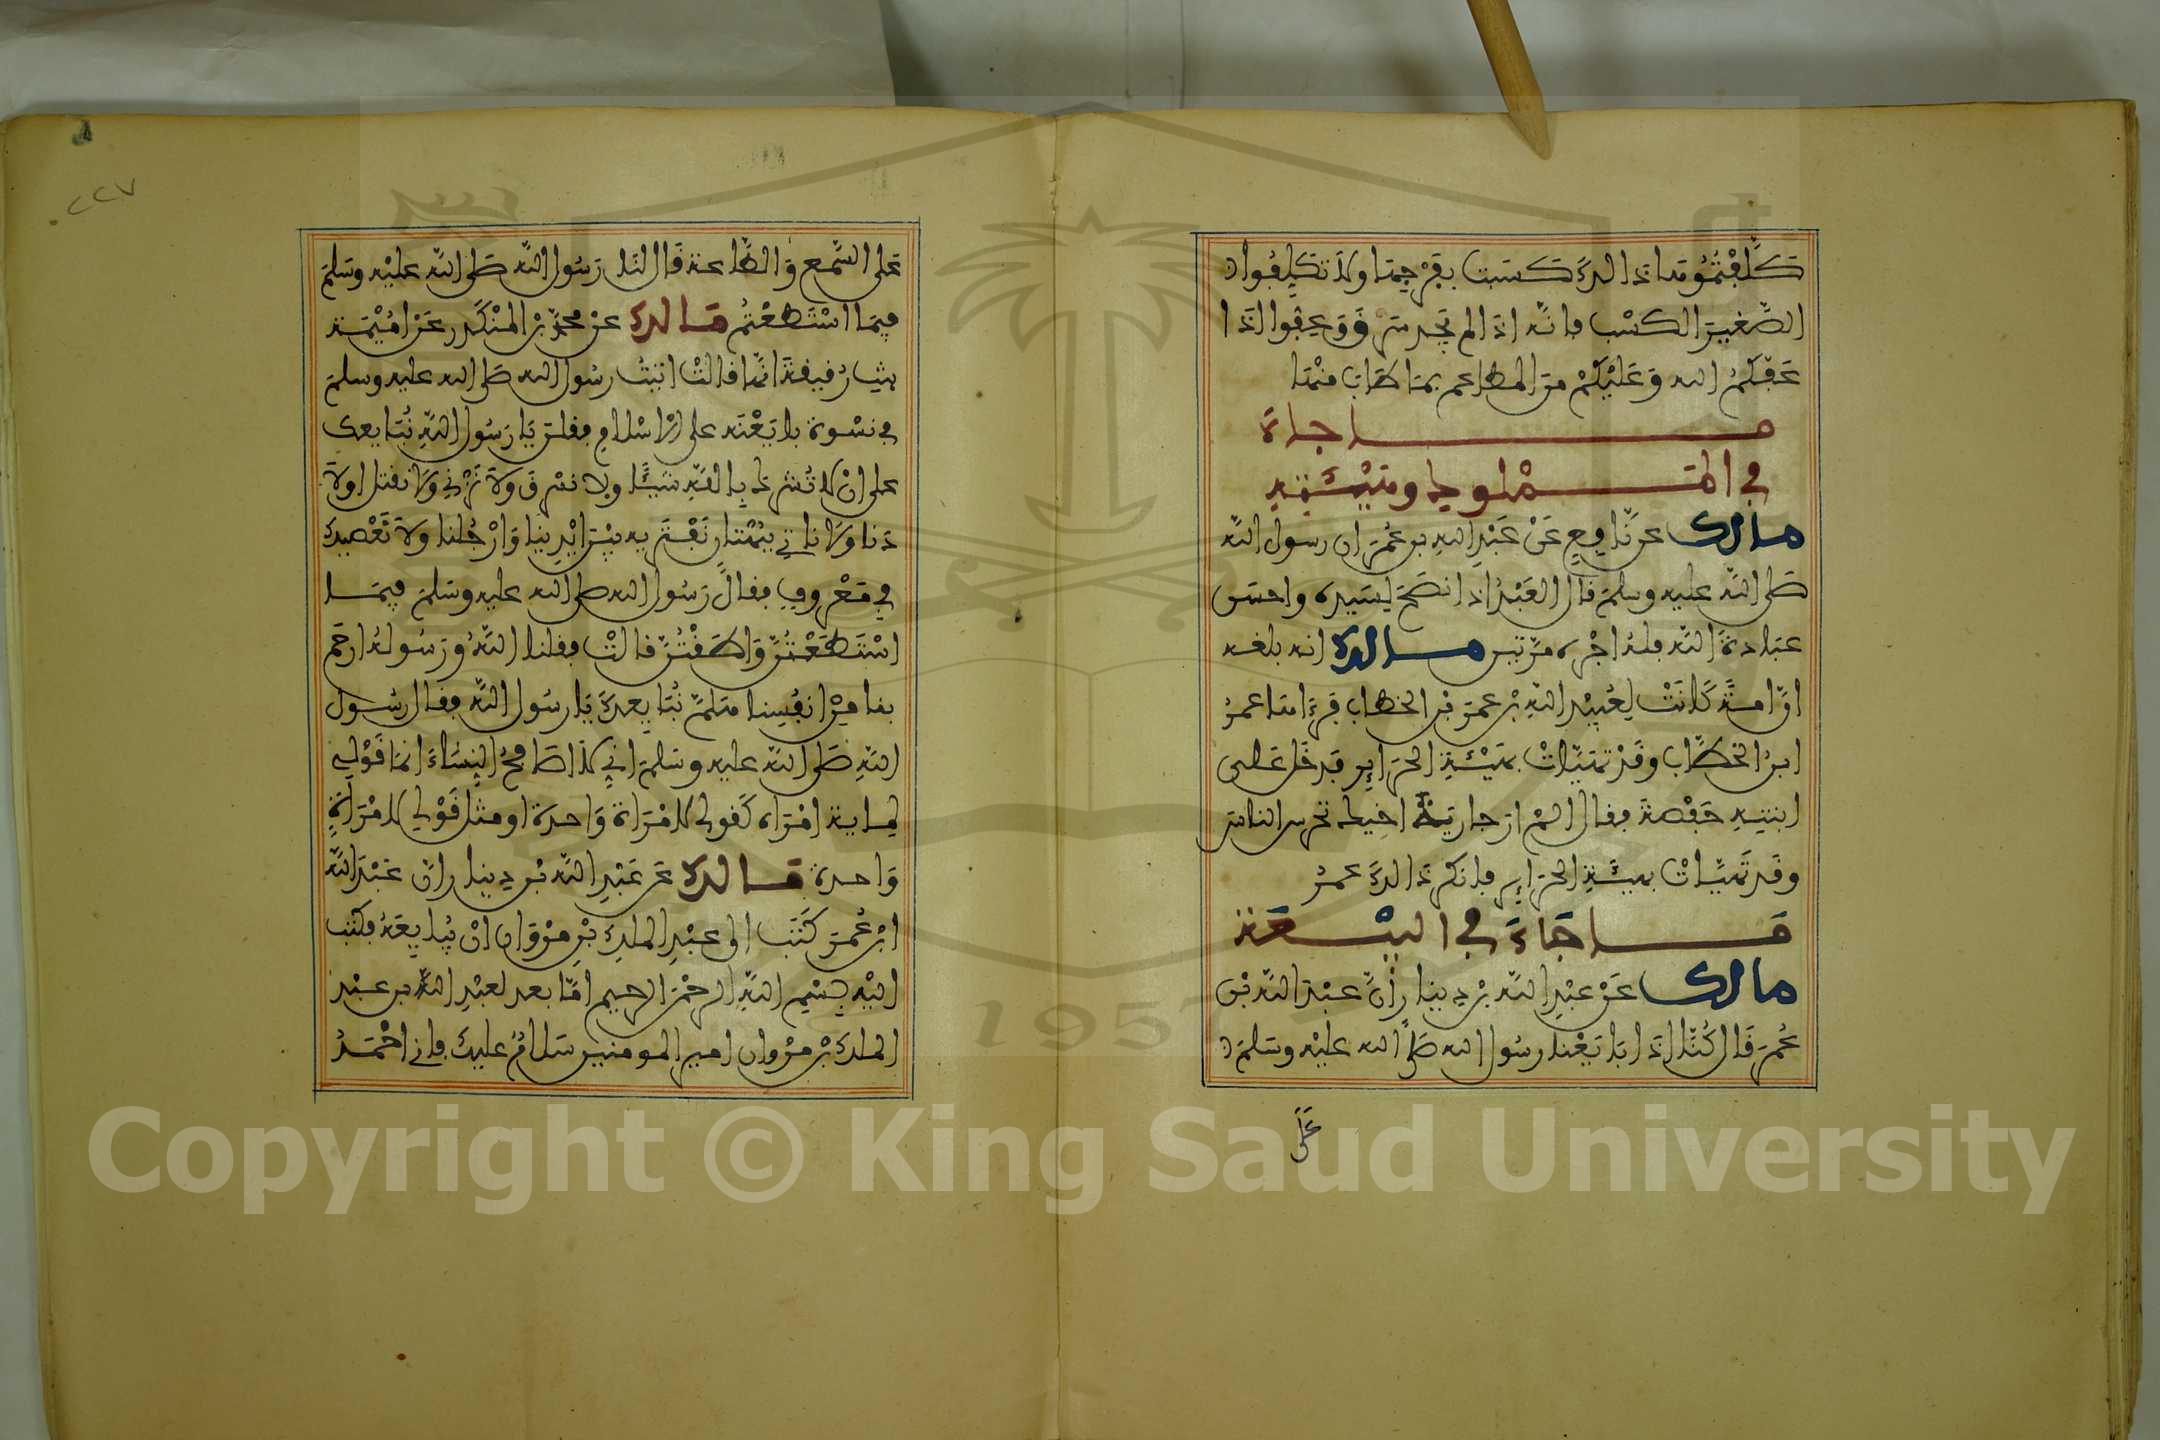 كلفتموها ذالك كسبت بفرجها ولا تكلفوا
الصغير الكسب فإنه اذا لم يجد سرق وعفوا اذا
عفكم الله وعليكم من المطاعم بما طاب منها
ما جاء
في المملوك وهيئته
مالك عن نافع عن عبد الله بن عمر ان رسول الله
صلى الله عليه وسلم قال العبد اذا نصح لسيده واحسن
عبادة الله فله اجره مرتين مالك انه بلغه
ان امة كانت لعبيد الله بن عمر بن الخطاب فرءاها عمر
ابن الخطاب وقد تهيأت بهيئة الحراير فدخل على
ابنته حفصة فقال الم ار جارية اخيك تجوس الناس
وقد تهيأت بهيئة الحراير فانكر ذالك عمر
ما جاء في البيعة
مالك عن عبد الله بن دينار أن عبد الله بن
عمر قال كنا اذا بايعنا رسول الله صلى الله عليه وسلم
على
٢٢٧
على السمع والطاعة قال لنا رسول الله صلى الله عليه وسلم
فيما استطعتم مالك عن محمد بن المنكدر عن اميمة
بنت رقيقة انها قالت اتيت رسول الله صلى الله عليه وسلم
في نسوة بايعنه على الاسلام فقلن يا رسول الله نبايعك
على ان لا نشرك بالله شيئا ولا نسرق ولا نزني ولا نقتل اولا
دنا ولا ناتي ببهتان نفتريه بين ايدينا وارجلنا ولا نعصيك
في معروف فقال رسول الله صلى الله عليه وسلم فيما
استطعتن واطقتن قالت فقلنا الله ورسوله ارحم
بنا من انفسنا هلم نبايعك يا رسول الله فقال رسول
الله صلى الله عليه وسلم اني لا اصافح النساء انما قولي
لماية امراة كقولي لامراة واحدة او مثل قولي لامراة
واحدة مالك عن عبد الله بن دينار ان عبد الله
ابن عمر كتب الى عبد الملك بن مروان ان يبايعه فكتب
اليه بسم الله الرحمن الرحيم اما بعد لعبد الله عبد
الملك بن مروان امير المومنين سلام عليك فاني احمد
Copyright © King Saud University
1957